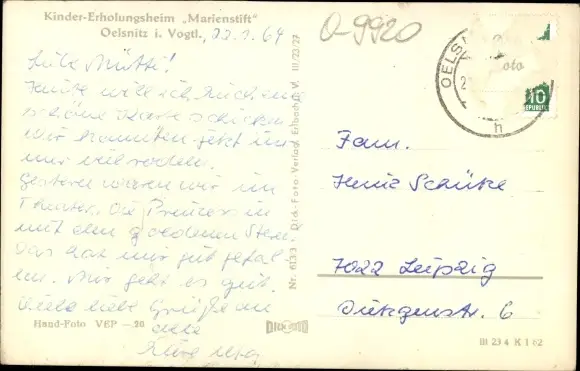 Kinder-Erholungsheim „Marienstift“
Oelsnitz i. Vogtl.
22.1.64
O-9920
Liebe Mutti!
Heute will ich Euch eine
schöne Karte schicken.
Wir konnten jetzt immer
viel rodeln.
Gestern waren wir im
Theater. Die Prinzessin
mit dem goldenen Stern.
Das hat mir gut gefal-
len. Mir geht es gut.
Viele liebe Grüße an
alle
Hand-Foto VEP – 20
Nr. 613 3 Dick-Foto-Verlag Erlbach i. V. III/23/27
DICK FOTO
OELSN
h
10
Foto
Fam.
Heinz Schütze
7022 Leipzig
str. 6
III 23 4 K 1 62